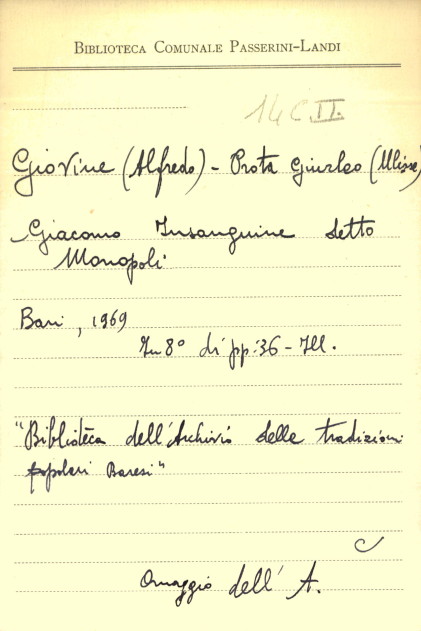 BIBLIOTECA COMUNALE PASSERINI-LANDI
14 C II.
Giovine (Alfredo) - Prota Giurleo (Ulisse)
Giacomo Insanguine detto
Monopoli
Bari, 1969
In 8° di pp: 36 - Ill.
"Biblioteca dell'Archivio delle tradizioni
popolari Baresi"
C
Omaggio dell' A.